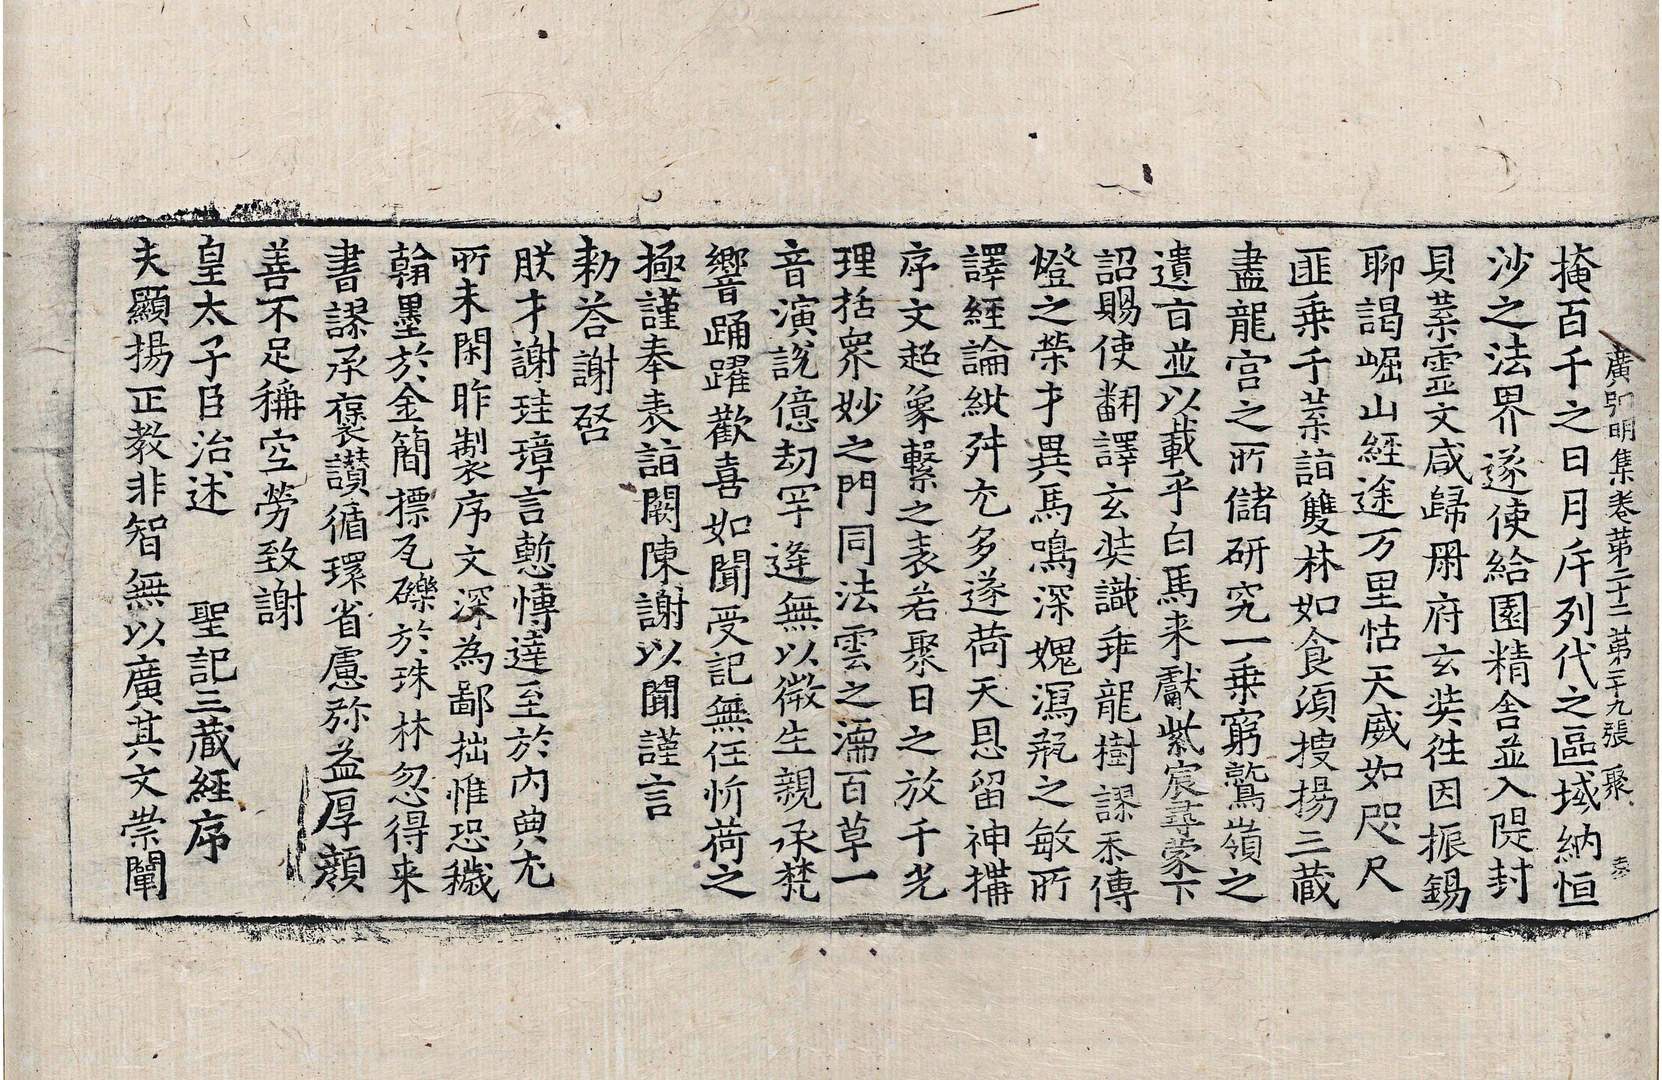 廣弘明集卷第二十二 第二十九張 聚
掩百千之日月斥列代之區域納恒
沙之法界遂使給園精舍並入隄封
貝葉靈文咸歸冊府玄奘往因振錫
聊謁崛山經途万里怙天威如咫尺
匪乗千葉詣雙林如食頃搜揚三藏
盡龍宫之所儲研究一乗窮鷲嶺之
遺旨並以載乎白馬来獻紫宸尋蒙下
詔賜使翻譯玄奘識乖龍樹謬忝傳
燈之榮才異馬鳴深媿瀉瓶之敏所
譯經論紕舛尤多遂荷天恩留神搆
序文超象繫之表若聚日之放千光
理括衆妙之門同法雲之濡百草一
音演說億劫罕逢無以微生親承梵
響踊躍歡喜如聞受記無任忻荷之
極謹奉表詣闕陳謝以聞謹言
勅荅謝啓
朕才謝珪璋言慙博達至於内典尤
所未閑昨製序文深為鄙拙惟恐穢
翰墨於金簡摽瓦礫於珠林忽得来
書謬承襃讃循環省慮弥益厚顔
善不足稱空勞致謝
皇太子臣治述　聖記三藏經序
夫顯揚正教非智無以廣其文崇闡